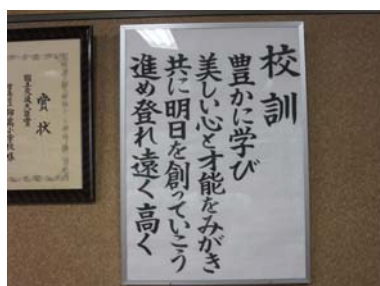 校訓
豊かに学び
美しい心と才能をみがき
共に明日を創っていこう
進め登れ遠く高く
賞状